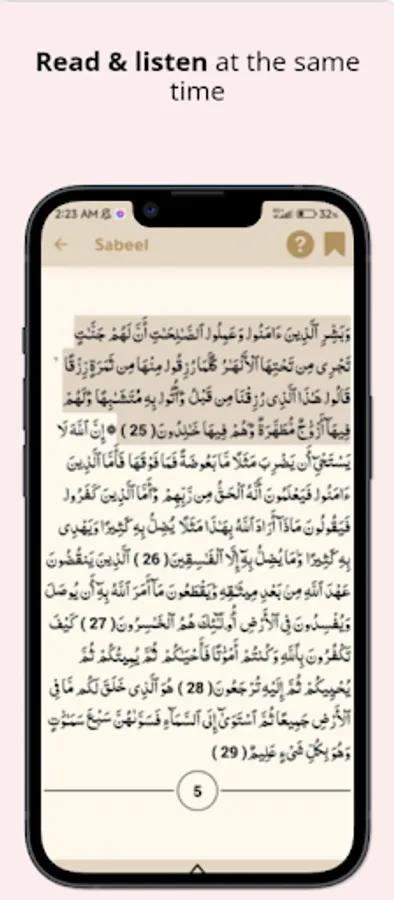 Read & listen at the same
time
2:23 AM
32%
Sabeel
?
وَبَشِّرِ ٱلَّذِينَ ءَامَنُوا۟ وَعَمِلُوا۟ ٱلصَّٰلِحَٰتِ أَنَّ لَهُمْ جَنَّٰتٍ
تَجْرِى مِن تَحْتِهَا ٱلْأَنْهَٰرُ كُلَّمَا رُزِقُوا۟ مِنْهَا مِن ثَمَرَةٍ رِّزْقًا
قَالُوا۟ هَٰذَا ٱلَّذِى رُزِقْنَا مِن قَبْلُ وَأُتُوا۟ بِهِۦ مُتَشَٰبِهًا وَلَهُمْ
فِيهَآ أَزْوَٰجٌ مُّطَهَّرَةٌ وَهُمْ فِيهَا خَٰلِدُونَ( 25 ) ۞ إِنَّ ٱللَّهَ لَا
يَسْتَحْىِۦٓ أَن يَضْرِبَ مَثَلًا مَّا بَعُوضَةً فَمَا فَوْقَهَا فَأَمَّا ٱلَّذِينَ
ءَامَنُوا۟ فَيَعْلَمُونَ أَنَّهُ ٱلْحَقُّ مِن رَّبِّهِمْ وَأَمَّا ٱلَّذِينَ كَفَرُوا۟
فَيَقُولُونَ مَاذَآ أَرَادَ ٱللَّهُ بِهَٰذَا مَثَلًا يُضِلُّ بِهِۦ كَثِيرًا وَيَهْدِى
بِهِۦ كَثِيرًا وَمَا يُضِلُّ بِهِۦٓ إِلَّا ٱلْفَٰسِقِينَ( 26 ) ٱلَّذِينَ يَنقُضُونَ
عَهْدَ ٱللَّهِ مِنۢ بَعْدِ مِيثَٰقِهِۦ وَيَقْطَعُونَ مَآ أَمَرَ ٱللَّهُ بِهِۦٓ أَن يُوصَلَ
وَيُفْسِدُونَ فِى ٱلْأَرْضِ أُو۟لَٰٓئِكَ هُمُ ٱلْخَٰسِرُونَ( 27 ) كَيْفَ
تَكْفُرُونَ بِٱللَّهِ وَكُنتُمْ أَمْوَٰتًا فَأَحْيَٰكُمْ ثُمَّ يُمِيتُكُمْ ثُمَّ
يُحْيِيكُمْ ثُمَّ إِلَيْهِ تُرْجَعُونَ( 28 ) هُوَ ٱلَّذِى خَلَقَ لَكُم مَّا فِى
ٱلْأَرْضِ جَمِيعًا ثُمَّ ٱسْتَوَىٰٓ إِلَى ٱلسَّمَآءِ فَسَوَّىٰهُنَّ سَبْعَ سَمَٰوَٰتٍ
وَهُوَ بِكُلِّ شَىْءٍ عَلِيمٌ( 29 )
5